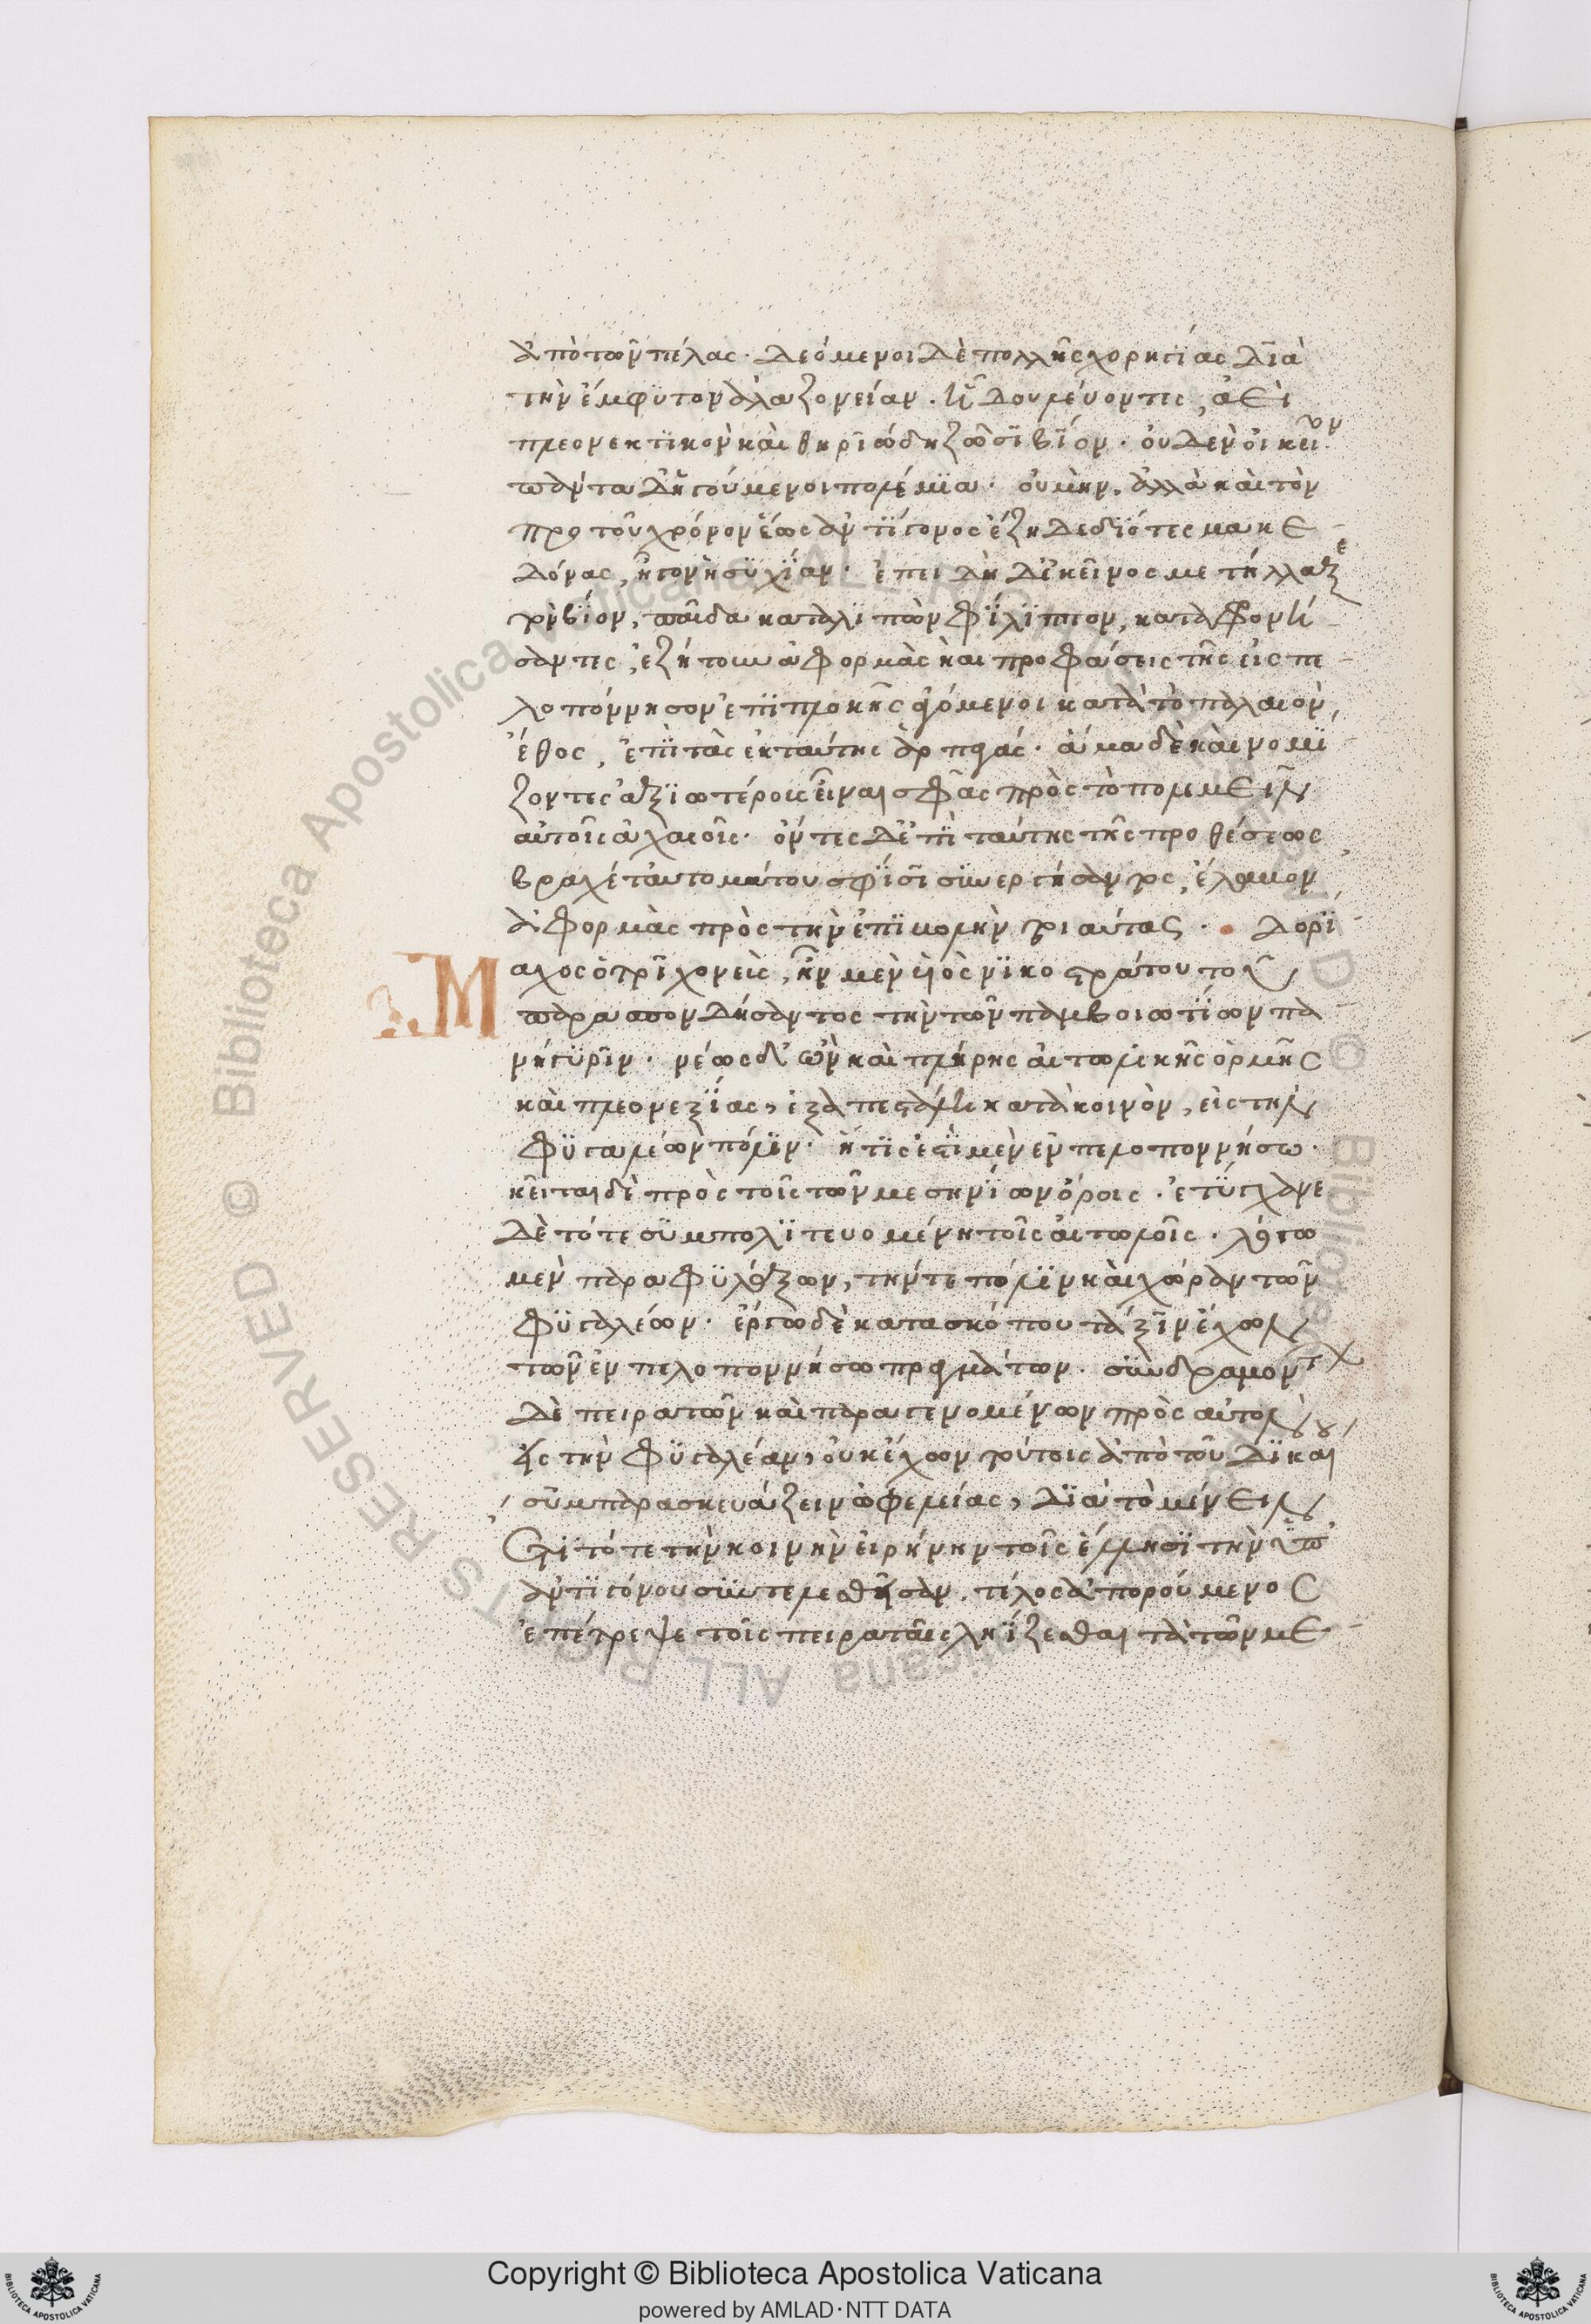 ἀπὸ τῶν πέλας· δεόμενοι δὲ πολλῆς χορηγίας διὰ
τὴν ἔμφυτον ἀλαζονείαν. ᾗ δουλεύοντες, ἀεὶ
πλεονεκτικὸν καὶ θηριώδη ζῶσι βίον· οὐδὲν οἰκεῖον
πάντα δ' ἡγούμενοι πολέμια· οὐ μὴν ἀλλὰ καὶ τὸν
πρὸ τοῦ χρόνον ἕως ἀντίγονος ἔζη δεδιότες μακε
δόνας, ἦγον ἡσυχίαν· ἐπειδὴ δ' ἐκεῖνος μετήλλαξε
τὸν βίον, παῖδα καταλιπὼν φίλιππον, καταφρονή
σαντες, ἐζήτουν ἀφορμὰς καὶ προφάσεις τῆς εἰς πε
λοπόννησον ἐπιπλοκῆς ἀγόμενοι κατὰ τὸ παλαιὸν
ἔθος, ἐπὶ τὰς ἐκ ταύτης ἁρπαγάς· ἅμα δὲ καὶ νομί
ζοντες ἀξιωτέροις εἶναι σφᾶς πρὸς τὸ πολεμεῖν
αὐτοῖς ἀχαιοῖς· ὄντες δ' ἐπὶ ταύτης τῆς προθέσεως
βραχέα ταὐτομάτου σφίσι συνεργήσαντος, ἔλαβον
ἀφορμὰς πρὸς τὴν ἐπιβολὴν τοιαύτας· δορί
μαχος ὁ τριχονεὺς, ἦν μὲν υἱὸς νικοστράτου τοῦ
παρασπονδήσαντος τὴν τῶν παμβοιωτίων πα
νήγυριν· νέος δ' ὢν καὶ πλήρης αἰτωλικῆς ὁρμῆς
καὶ πλεονεξίας, ἐξαπεστάλη κατὰ κοινὸν, εἰς τὴν
φυγαλέων πόλιν· ἥτις ἐστὶ μὲν ἐν πελοποννήσω·
κεῖται δὲ πρὸς τοῖς τῶν μεσηνίων ὅροις· ἐτύγχανε
δὲ τότε συμπολιτευομένη τοῖς αἰτωλοῖς· λόγω
μὲν παραφυλάξων, τήν τε πόλιν καὶ χώραν τῶν
φυγαλέων· ἔργω δὲ κατασκόπου τάξιν ἔχων
τῶν ἐν πελοποννήσω πραγμάτων· συνδραμόντων
δὲ πειρατῶν καὶ παραγενομένων πρὸς αὐτὸν
εἰς τὴν φυγαλέαν, οὐκ ἔχων τούτοις ἀπὸ τοῦ δικαί
συμπαρασκευάζειν ὠφελείας, διὰ τὸ μένειν
ἔτι τότε τὴν κοινὴν εἰρήνην τοῖς ἕλλησι τὴν ὑπ'
ἀντιγόνου συντελεσθεῖσαν. τέλος ἀπορούμενος
ἐπέτρεψε τοῖς πειραταῖς ληίζεσθαι τὰ τῶν με
Copyright © Biblioteca Apostolica Vaticana
powered by AMLAD·NTT DATA